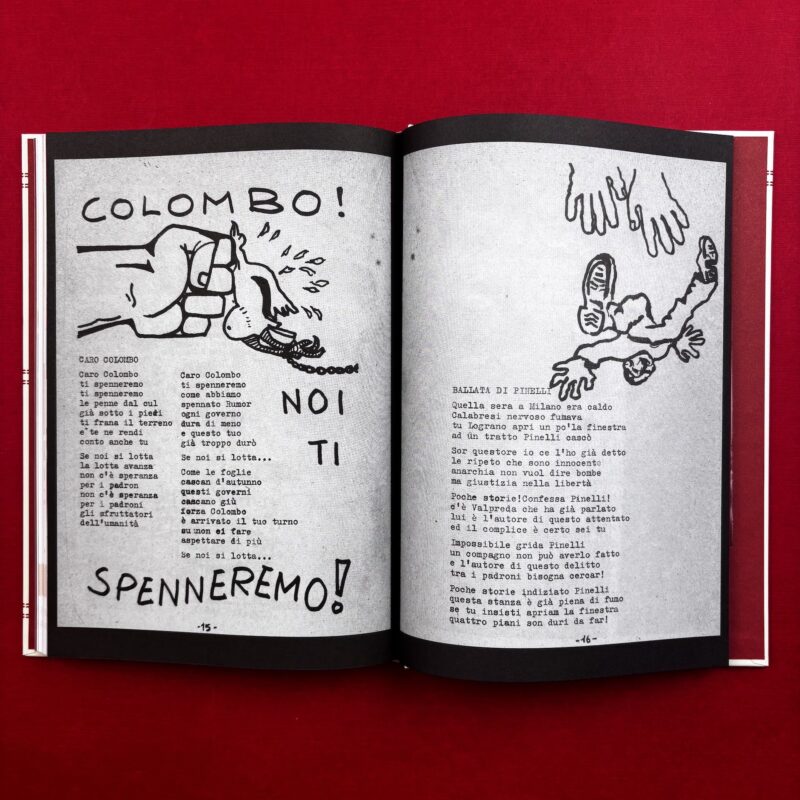 COLOMBO!
CARO COLOMBO
Caro Colombo
ti spenneremo
ti spenneremo
le penne dal cul
già sotto i piedi
ti frana il terreno
e te ne rendi
conto anche tu
Se noi si lotta
la lotta avanza
non c'è speranza
per i padron
non c'è speranza
per i padroni
gli sfruttatori
dell'umanità
Caro Colombo
ti spenneremo
come abbiamo
spennato Rumor
ogni governo
dura di meno
e questo tuo
già troppo durò
Se noi si lotta...
Come le foglie
cascan d'autunno
questi governi
cascano giù
forza Colombo
è arrivato il tuo turno
su non ci fare
aspettare di più
Se noi si lotta...
NOI
TI
SPENNEREMO!
-15-
BALLATA DI PINELLI
Quella sera a Milano era caldo
Calabresi nervoso fumava
tu Lograno apri un po'la finestra
ad un tratto Pinelli cascò
Sor questore io ce l'ho già detto
le ripeto che sono innocente
anarchia non vuol dire bombe
ma giustizia nella libertà
Poche storie!Confessa Pinelli!
c'è Valpreda che ha già parlato
lui è l'autore di questo attentato
ed il complice è certo sei tu
Impossibile grida Pinelli
un compagno non può averlo fatto
e l'autore di questo delitto
tra i padroni bisogna cercar!
Poche storie indiziato Pinelli
questa stanza è già piena di fumo
se tu insisti apriam la finestra
quattro piani son duri da far!
-16-